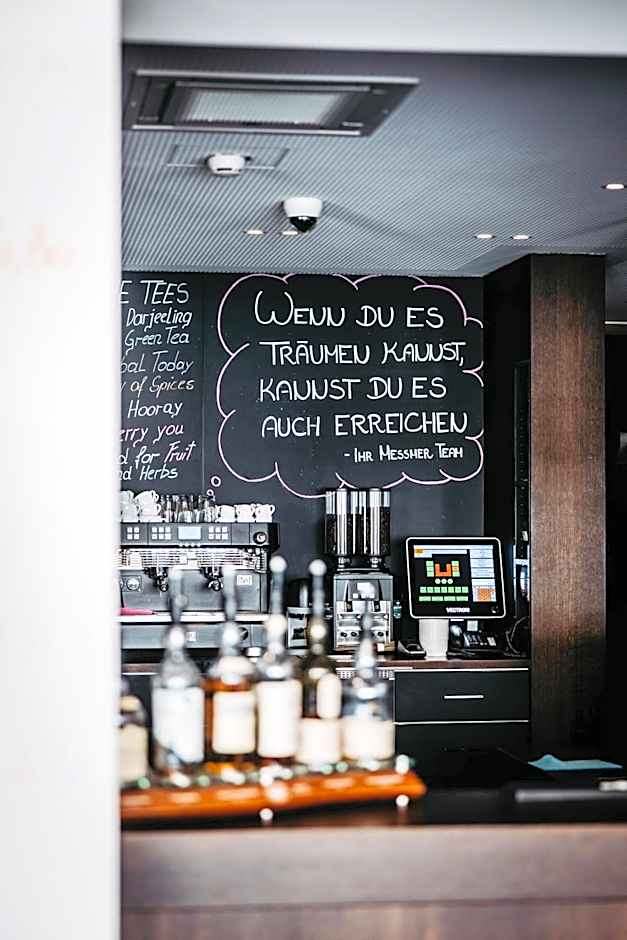 E TEES
Darjeeling
Green Tea
bal Today
y of Spices
Hooray
erry you
d for Fruit
nd Herbs
WENN DU ES
TRÄUMEN KANNST,
KANNST DU ES
AUCH ERREICHEN
- IHR MESSMER TEAM
VECTRON